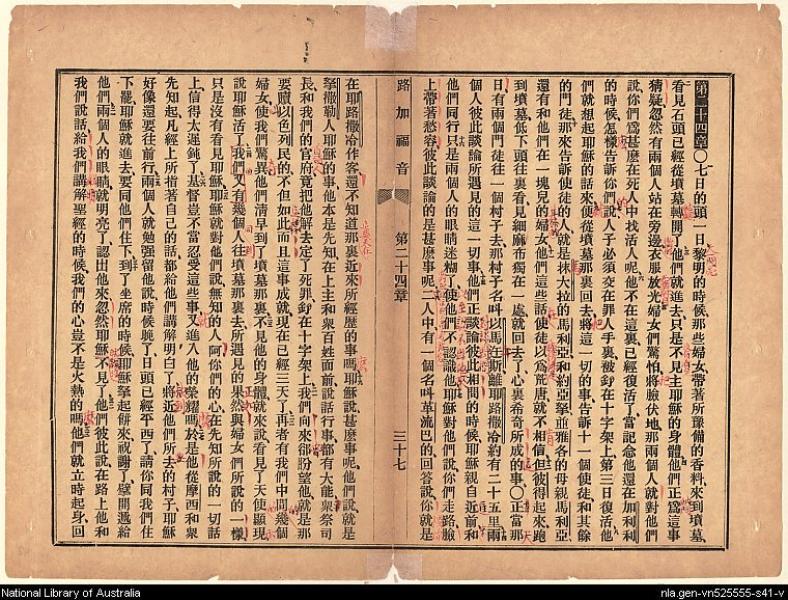 第二十四章〇七日的頭一日黎明的時候那些婦女帶著所豫備的香料來到墳墓
看見石頭已經從墳墓轉開了他們就進去只是不見主耶穌的身體他們正爲這事
猜疑忽然有兩個人站在旁邊衣服放光婦女們驚怕將臉伏地那兩個人就對他們
說你們爲甚麽在死人中找活人呢他不在這裏已經復活了當記念他還在加利利
的時候怎樣告訴你們說人子必須交在罪人手裏被釘在十字架上第三日復活他
們就想起耶穌的話來便從墳墓那裏回去將這一切的事告訴十一個使徒和其餘
的門徒那來告訴使徒的人就是抹大拉的馬利亞和約亞拏並雅各的母親馬利亞
還有和他們在一塊兒的婦女他們這些話使徒以爲荒唐就不相信但彼得起來跑
到墳墓低下頭往裏看見細麻布獨在一處就回去了心裏希奇所成的事〇正當那
日有兩個門徒往一個村子去那村子名叫以馬忤斯離耶路撒冷約有二十五里兩
個人彼此談論所遇見的這一切事他們正談論彼此相問的時候耶穌親自近前和
他們同行只是兩個人的眼睛迷糊了使他們不認識他耶穌對他們說你們走路臉
上帶著愁容彼此談論的是甚麽事呢二人中有一個名叫革流巴的回答說你就是
路加福音 第二十四章 三十七
在耶路撒冷作客還不知道那裏近來所經歷的事嗎耶穌說甚麽事呢他們說就是
拏撒勒人耶穌的事他本是先知在上主和衆百姓面前說話行事都有大能衆祭司
長和我們的官府竟把他解去定了死罪釘在十字架上我們向來都盼望他就是那
要贖以色列民的不但如此而且這事成就現在已經三天了再者有我們中間幾個
婦女使我們驚異他們清早到了墳墓那裏不見他的身體就來說看見了天使顯現
說耶穌活了我們又有幾個人往墳墓那裏去所遇見的果然與婦女們所說的一樣
只是沒有看見耶穌耶穌就對他們說無知的人阿你們的心在先知所說的一切話
上信得太遲鈍了基督豈不當忍受這些事又進入他的榮耀嗎於是他從摩西和衆
先知起凡經上所指著自己的話都給他們講解明白了將近他們所去的村子耶穌
好像還要往前行兩個人就勉强留他說時候晚了日頭已經平西了請你同我們住
下罷耶穌就進去要同他們住下到了坐席的時候耶穌拏起餅來祝謝了擘開遞給
他們兩個人的眼睛就明亮了認出他來忽然耶穌不見了他們彼此說在路上他和
我們說話給我們講解聖經的時候我們的心豈不是火熱的嗎他們就立時起身回
National Library of Australia
nla.gen-vn525555-s41-v